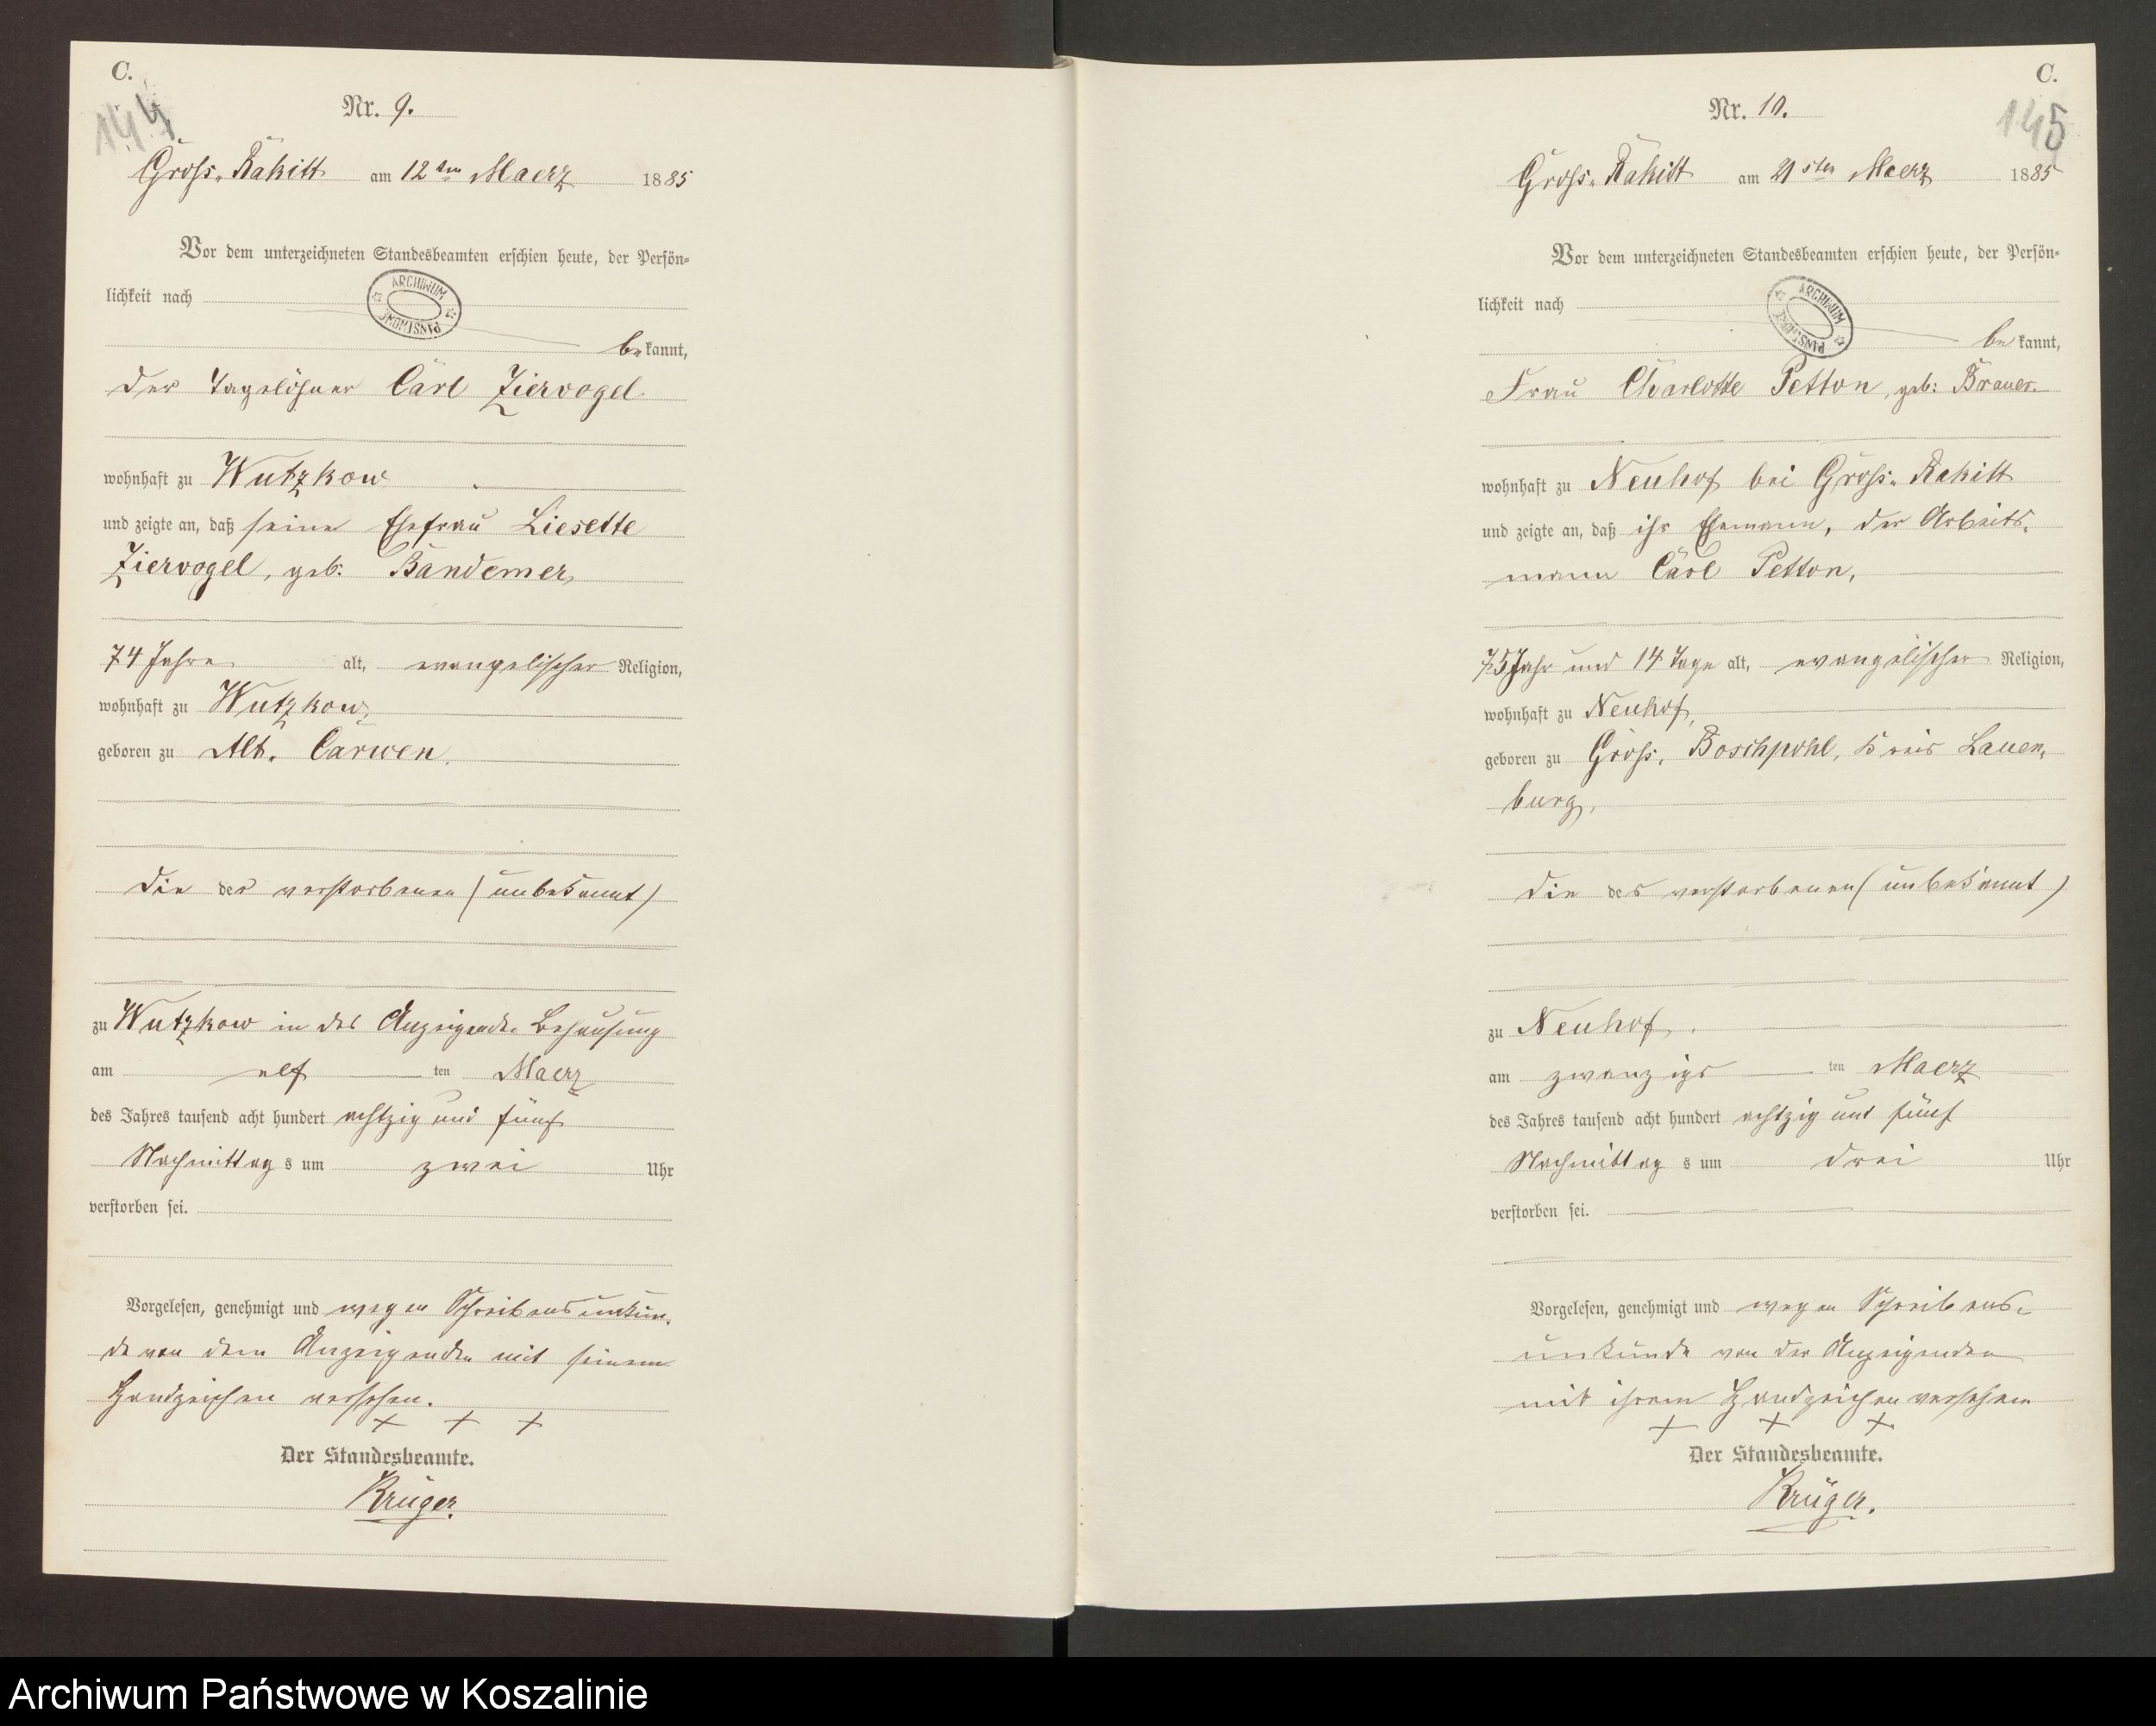 C.
144
Nr. 9.
Gross-Rakitt am 12ten Maerz 1885
Vor dem unterzeichneten Standesbeamten erschien heute, der Persön-
lichkeit nach
ARCHIWUM PAŃSTWOWE
bekannt,
der Tagelöhner Carl Ziervogel
wohnhaft zu Wutzkow
und zeigte an, daß seine Ehefrau Liesette
Ziervogel, geb: Bandemer,
74 Jahre alt, evangelischer Religion,
wohnhaft zu Wutzkow,
geboren zu Alt-Carwen,
die der verstorbenen (unbekannt)
zu Wutzkow in des Anzeigenden Behausung
am elf ten Maerz
des Jahres tausend acht hundert achtzig und fünf
Nachmittags um zwei Uhr
verstorben sei.
Vorgelesen, genehmigt und wegen Schreibensunkun-
de von dem Anzeigenden mit seinem
Handzeichen versehen.
+ + +
Der Standesbeamte.
Krüger.
C.
145
Nr. 10.
Gross-Rakitt am 21sten Maerz 1885
Vor dem unterzeichneten Standesbeamten erschien heute, der Persön-
lichkeit nach
ARCHIWUM PAŃSTWOWE
bekannt,
Frau Charlotte Petton, geb: Brauer.
wohnhaft zu Neuhof bei Gross-Rakitt
und zeigte an, daß ihr Ehemann, der Arbeits-
mann Carl Petton,
75 Jahr und 14 Tage alt, evangelischer Religion,
wohnhaft zu Neuhof,
geboren zu Gross-Boschpohl, Kreis Lauen-
burg,
die des verstorbenen (unbekannt)
zu Neuhof,
am zwanzigs ten Maerz
des Jahres tausend acht hundert achtzig und fünf
Nachmittags um drei Uhr
verstorben sei.
Vorgelesen, genehmigt und wegen Schreibens-
unkunde von der Anzeigenden
mit ihrem Handzeichen versehen
+ + +
Der Standesbeamte.
Krüger.
Archiwum Państwowe w Koszalinie